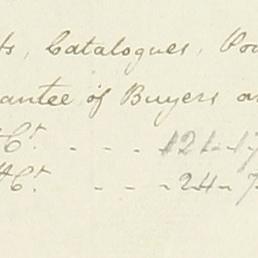 ts, Catalogues, Po
antee of Buyers a
Ct. - - - 121-17
Ct. - - - 24-7